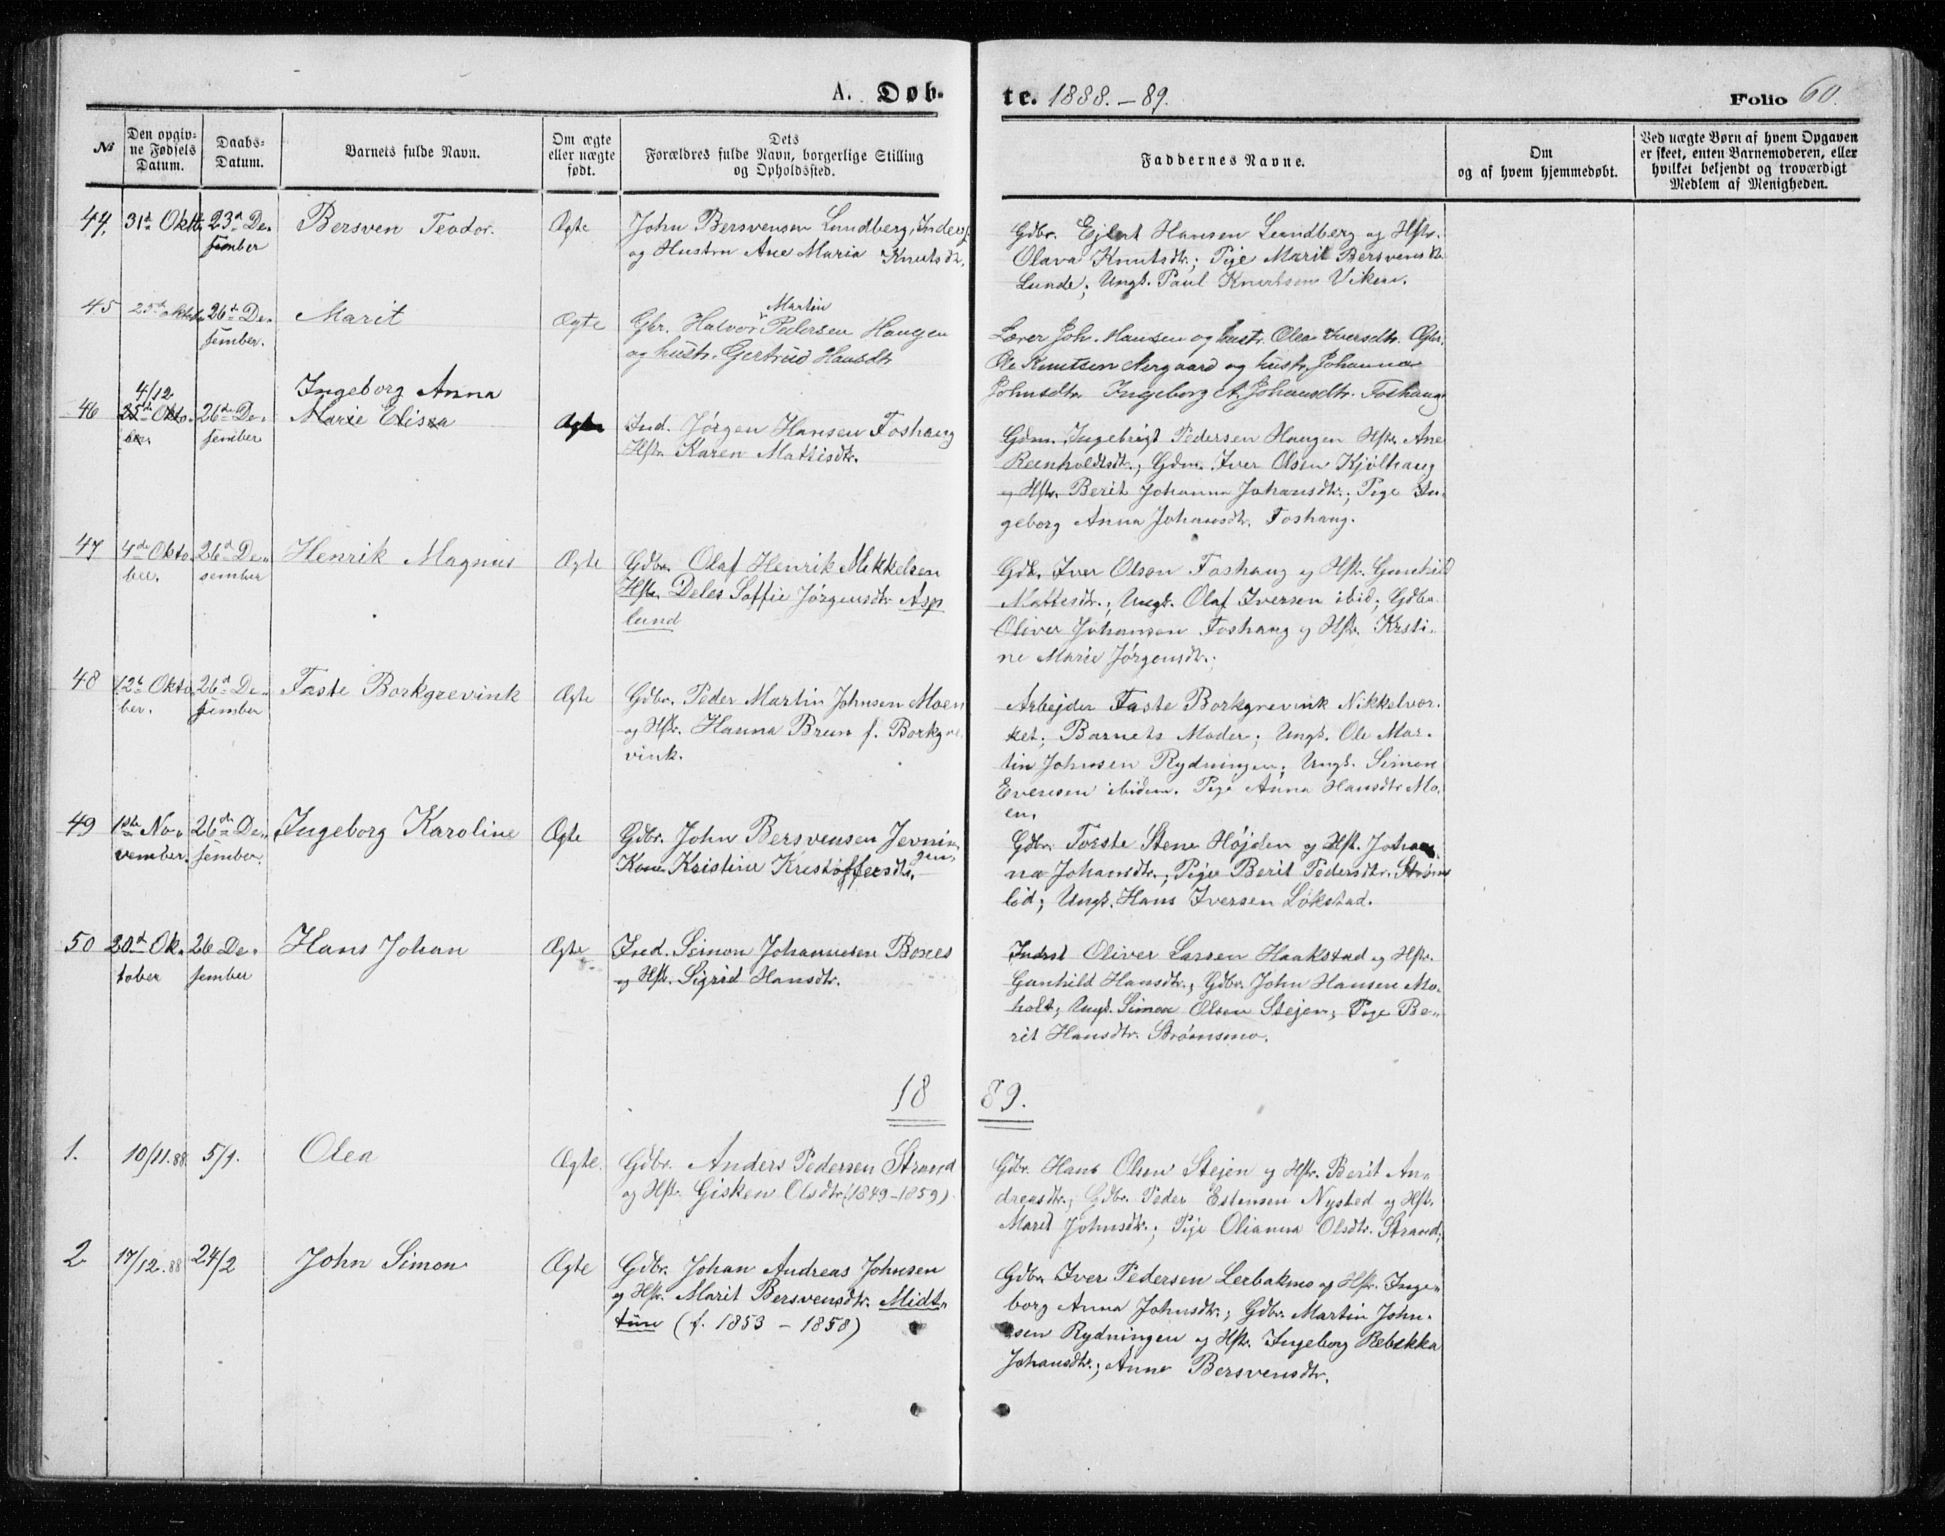 A. Døb-
te. 1888.-89.
Folio 60.
№
Den opgiv-
ne Fødsels
Datum.
Daabs-
Datum.
Barnets fulde Navn.
Om ægte
eller uægte
født.
Dets
Forældres fulde Navn, borgerlige Stilling
og Opholdssted.
Faddernes Navne.
Om
og af hvem hjemmedøbt.
Ved uægte Børn af hvem Opgaven
er skeet, enten Barnemoderen, eller
hvilket bekjendt og troværdigt
Medlem af Menigheden.
44. 31te Okt. 23de De-
sember
Bersven Teodor.
Ægte
John Bersvensen Lundberg, Inders
og Hustru Ane Maria Knutsdtr.
Gdbr. Ejlert Hansen Lundberg og Hstr.
Olava Knutsdtr.; Pige Marit Bersvensdtr.
Lunde; Ungk. Paul Knutsen Viken.
45 25de Oktober 26de De-
sember.
Marit
Ægte
Martin
Gbr. Halvor Pedersen Haugen
og hustr. Gertrud Hansdtr
Lærer Joh. Hansen og hustr. Olea Iversdtr. Gbr.
Ole Knutsen Aergaard og hustr. Johanna
Johnsdtr Ingeborg A. Johansdtr. Foshaug
4/12
46 25de Okto-
ber. 26de De-
sember
Ingeborg Anna
Marie Elisa
Ægte
Ind. Jørgen Hansen Foshaug
Hstr. Karen Mattisdtr.
Gdm. Ingebrigt Pedersen Haugen Hstr. Ane
Reenholdtsdtr.; Gdm. Iver Olsen Kjølhaug
og Hstr. Berit Johanna Johansdtr.; Pige In-
geborg Anna Johansdtr. Foshaug.
47 4de Okto-
ber. 26de De-
sember
Henrik Magnus
Ægte
Gdbr. Olaf Henrik Mikkelsen
Hstr. Deles Soffie Jørgensdtr Asp
lund
Gdb. Iver Olsen Foshaug og Hstr. Gunhild
Mattesdtr.; Ungk. Olaf Iversen ibid; Gdbr.
Oliver Johansen Foshaug og Hstr. Kristi-
ne Marie Jørgensdtr.
48 12te Okto-
ber. 26de De-
sember
Faste Borkgrevink
Ægte
Gdbr. Peder Martin Johnsen Moen
og Hstr. Hanna Brun f. Borkgre
vink.
Arbejder Faste Borkgrevink Nikkelvær-
ket; Barnets Moder; Ungk. Ole Mar-
tin Johnsen Rydningen; Ungk. Simon
Evensen ibidem. Pige Anna Hansdtr Mo-
en.
49 1ste No-
vember. 26de De-
sember.
Ingeborg Karoline
Ægte
Gdbr. John Bersvensen Jevnin-
gen,
Kone Kristine Kristoffersdtr.
Gdbr. Torste Stene Højden og Hstr. Johan-
na Johansdtr.; Pige Berit Pedersdtr. Strøms
lid; Ungk. Hans Iversen Løkstad.
50 20de Ok-
tober 26 De-
sember
Hans Johan
Ægte
Ind. Simon Johannesen Bones
og Hstr. Sigrid Hansdtr.
Inderst Oliver Larsen Haakstad og Hstr.
Gunhild Hansdtr.; Gdbr. John Hansen Mo-
holt; Ungk. Simon Olsen Stejen; Pige Be-
rit Hansdtr. Strømsmo.
18 89.
1. 10/11.88. 5/1.
Olea
Ægte.
Gdbr. Anders Pedersen Strand
og Hstr. Gisken Olsdtr (1849-1859)
Gdbr. Hans Olsen Stejen og Hstr. Berit An-
dreasdtr.; Gdbr. Peder Estensen Nysted og Hstr.
Marit Johnsdtr.; Pige Olianna Olsdtr. Strand;
2 17/12.88 24/2
John Simon
Ægte
Gdbr. Johan Andreas Johnsen
og Hstr. Marit Bersvensdtr. Midt-
tun (f. 1853 - 1858)
Gdbr. Iver Pedersen Lerbakmo og Hstr. Inge-
borg Anna Johnsdtr.; Gdbr. Martin John-
sen Rydningen og Hstr. Ingeborg Rebekka
Johansdtr.; Anne Bersvensdtr.